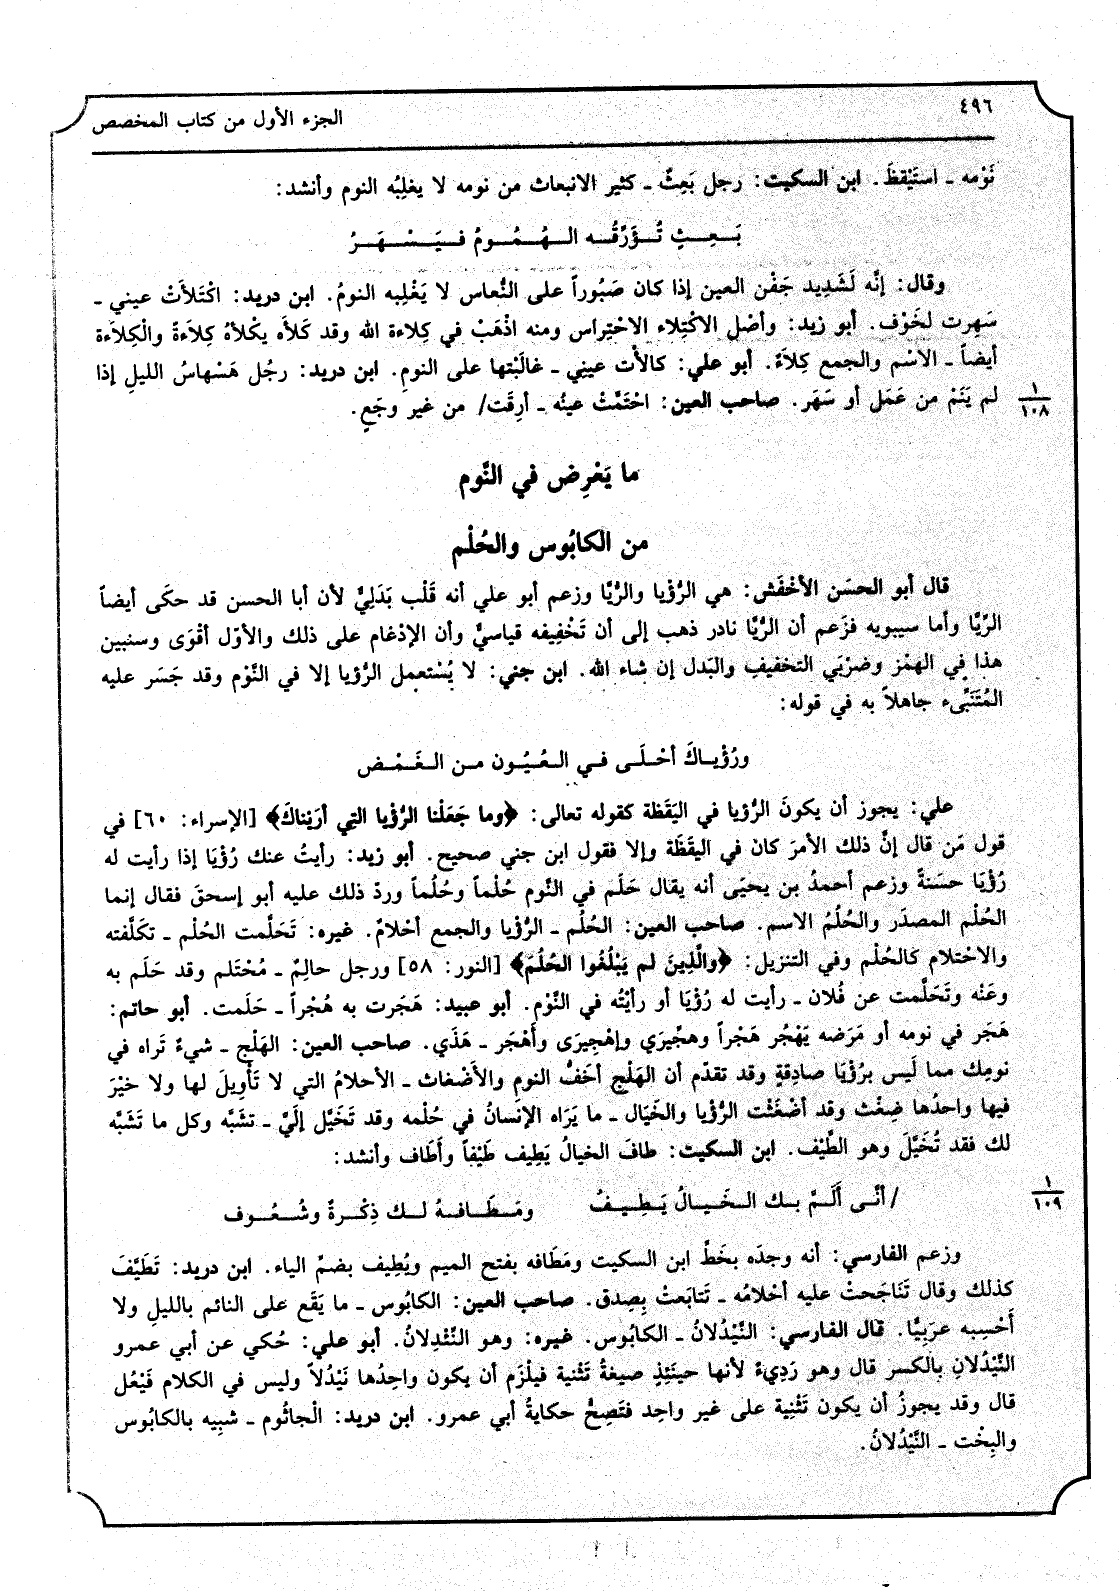 ٤٩٦
الجزء الأول من كتاب المخصص
نَوْمه ـ استَيْقظَ. ابن السكيت: رجل بَعِثٌ ـ كثير الانبعاث من نومه لا يغلِبُه النوم وأنشد:
بَـعِـثٍ تُـؤَرِّقُـه الـهُـمُـومُ فـيَـسْـهَـرُ
وقال: إنَّه لَشَدِيد جَفْن العين إذا كان صَبُوراً على النُّعاس لا يَغْلِبه النومُ. ابن دريد: اكْتَلأَتْ عيني ـ
سَهِرت لخَوْف. أبو زيد: وأصْل الاكْتِلاء الاحْتِراس ومنه اذْهَبْ في كِلاءة الله وقد كَلأَه يكْلأُهُ كِلاَءةً والْكِلاَءة
أيضاً ـ الاسْم والجمع كِلاَءٌ. أبو علي: كالأْت عينِي ـ غالَبْتها على النوم. ابن دريد: رجُل هَسْهاسُ الليلِ إذا
لم يَنَمْ من عَمَل أو سَهَر. صاحب العين: احْتَمَّتْ عينُه ـ أرِقَت/ من غير وجَعٍ.
١
١٠٨
ما يَعْرِض في النَّوم
من الكابُوس والحُلْم
قال أبو الحسَن الأخْفَش: هي الرُّؤْيا والرُّيَّا وزعم أبو علي أنه قَلْب بَدَلِيٌّ لأن أبا الحسن قد حكَى أيضاً
الرِّيَّا وأما سيبويه فزَعم أن الرُّيَّا نادر ذهب إلى أن تَخْفِيفه قياسيٌّ وأن الإدْغام على ذلك والأوّل أقْوَى وسنبين
هذا في الهمْز وضرْبَي التخفيف والبَدل إن شاء الله. ابن جني: لا يُسْتعمل الرُّؤيا إلا في النَّوْم وقد جَسَر عليه
المُتَنَبِّىء جاهلاً به في قوله:
ورُؤْيـاكَ أحْـلَـى فـي الـعُـيُـون مـن الـغَـمْـض
علي: يجوز أن يكونَ الرُّؤيا في اليَقَظة كقوله تعالى: ﴿وما جَعَلْنا الرُّؤْيا التِي أرَيْناكَ﴾ [الإسراء: ٦٠] في
قول مَن قال إنَّ ذلك الأمرَ كان في اليقَظَة وإلا فقول ابن جني صحيح. أبو زيد: رأيتُ عنك رُؤْيَا إذا رأيت له
رُؤْيَا حسَنةً وزعم أحمدُ بن يحيَى أنه يقال حَلَم في النَّوم حُلْماً وحُلُماً وردّ ذلك عليه أبو إسحقَ فقال إنما
الحُلْم المصدَر والحُلُمُ الاسم. صاحب العين: الحُلُم ـ الرُّؤْيا والجمع أحْلامٌ. غيره: تَحَلَّمت الحُلْم ـ تكَلَّفته
والاحْتلام كَالحُلْم وفي التنزيل: ﴿والَّذِينَ لم يَبْلُغُوا الحُلُمَ﴾ [النور: ٥٨] ورجل حالِمٌ ـ مُحْتَلم وقد حَلَم به
وعَنْه وتَحَلَّمت عن فُلان ـ رأيت له رُؤْيَا أو رأيْتُه في النَّوْمِ. أبو عبيد: هَجَرت به هُجْراً ـ حَلَمت. أبو حاتم:
هَجَر في نومه أو مَرَضه يَهْجُر هَجْراً وهجِّيرَي وإهْجِيرَى وأَهْجَر ـ هَذَي. صاحب العين: الهَلْج ـ شيءٌ تَراه في
نومِك مما لَيس برُؤْيَا صادِقةٍ وقد تقدّم أن الهَلْج أخَفُّ النوم والأَضْغاث ـ الأحلامُ التي لا تَأْوِيلَ لها ولا خيْرَ
فيها واحدُها ضِغْث وقد أضْغَثْت الرُّؤْيا والخَيَال ـ ما يَرَاه الإنسانُ في حُلْمه وقد تَخَيَّل إلَيَّ ـ تشَبَّه وكل ما تَشَبَّه
لك فقد تُخَيَّلَ وهو الطَّيْف. ابن السكيت: طافَ الخيالُ يَطِيف طَيْفاً وأَطَاف وأنشد:
/ أنَّـى أَلَـمَّ بـك الـخَـيـالُ يَـطِـيـفُ    ومَـطَـافـهُ لـك ذِكْـرةٌ وشُـعُـوف
١
١٠٩
وزعم الفارسي: أنه وجدَه بخَطِّ ابن السكيت ومَطَافه بفتح الميم ويُطِيف بضمِّ الياء. ابن دريد: تَطَيَّفَ
كذلك وقال تَنَاجَحتْ عليه أحْلامُه ـ تَتابَعتْ بِصِدق. صاحب العين: الكابُوس ـ ما يَقَع على النائم بالليلِ ولا
أَحْسِبه عرَبِيًّا. قال الفارسي: النَّيْدُلانُ ـ الكابُوس. غيره: وهو النَّئْدِلانُ. أبو علي: حُكي عن أبي عمرو
النَّيْدُلانِ بالكسر قال وهو رَدِيءٌ لأنها حينَئِذٍ صيغةُ تَثْنية فيلْزَم أن يكون واحِدُها نَيْدُلاً وليس في الكلام فَيْعُل
قال وقد يجوزُ أن يكون تَثْنِية على غير واحِد فتَصِحُّ حكايةُ أبي عمرو. ابن دريد: الْجاثُوم ـ شبِيه بالكابُوس
والبِخْت ـ النَّيْدُلانُ.